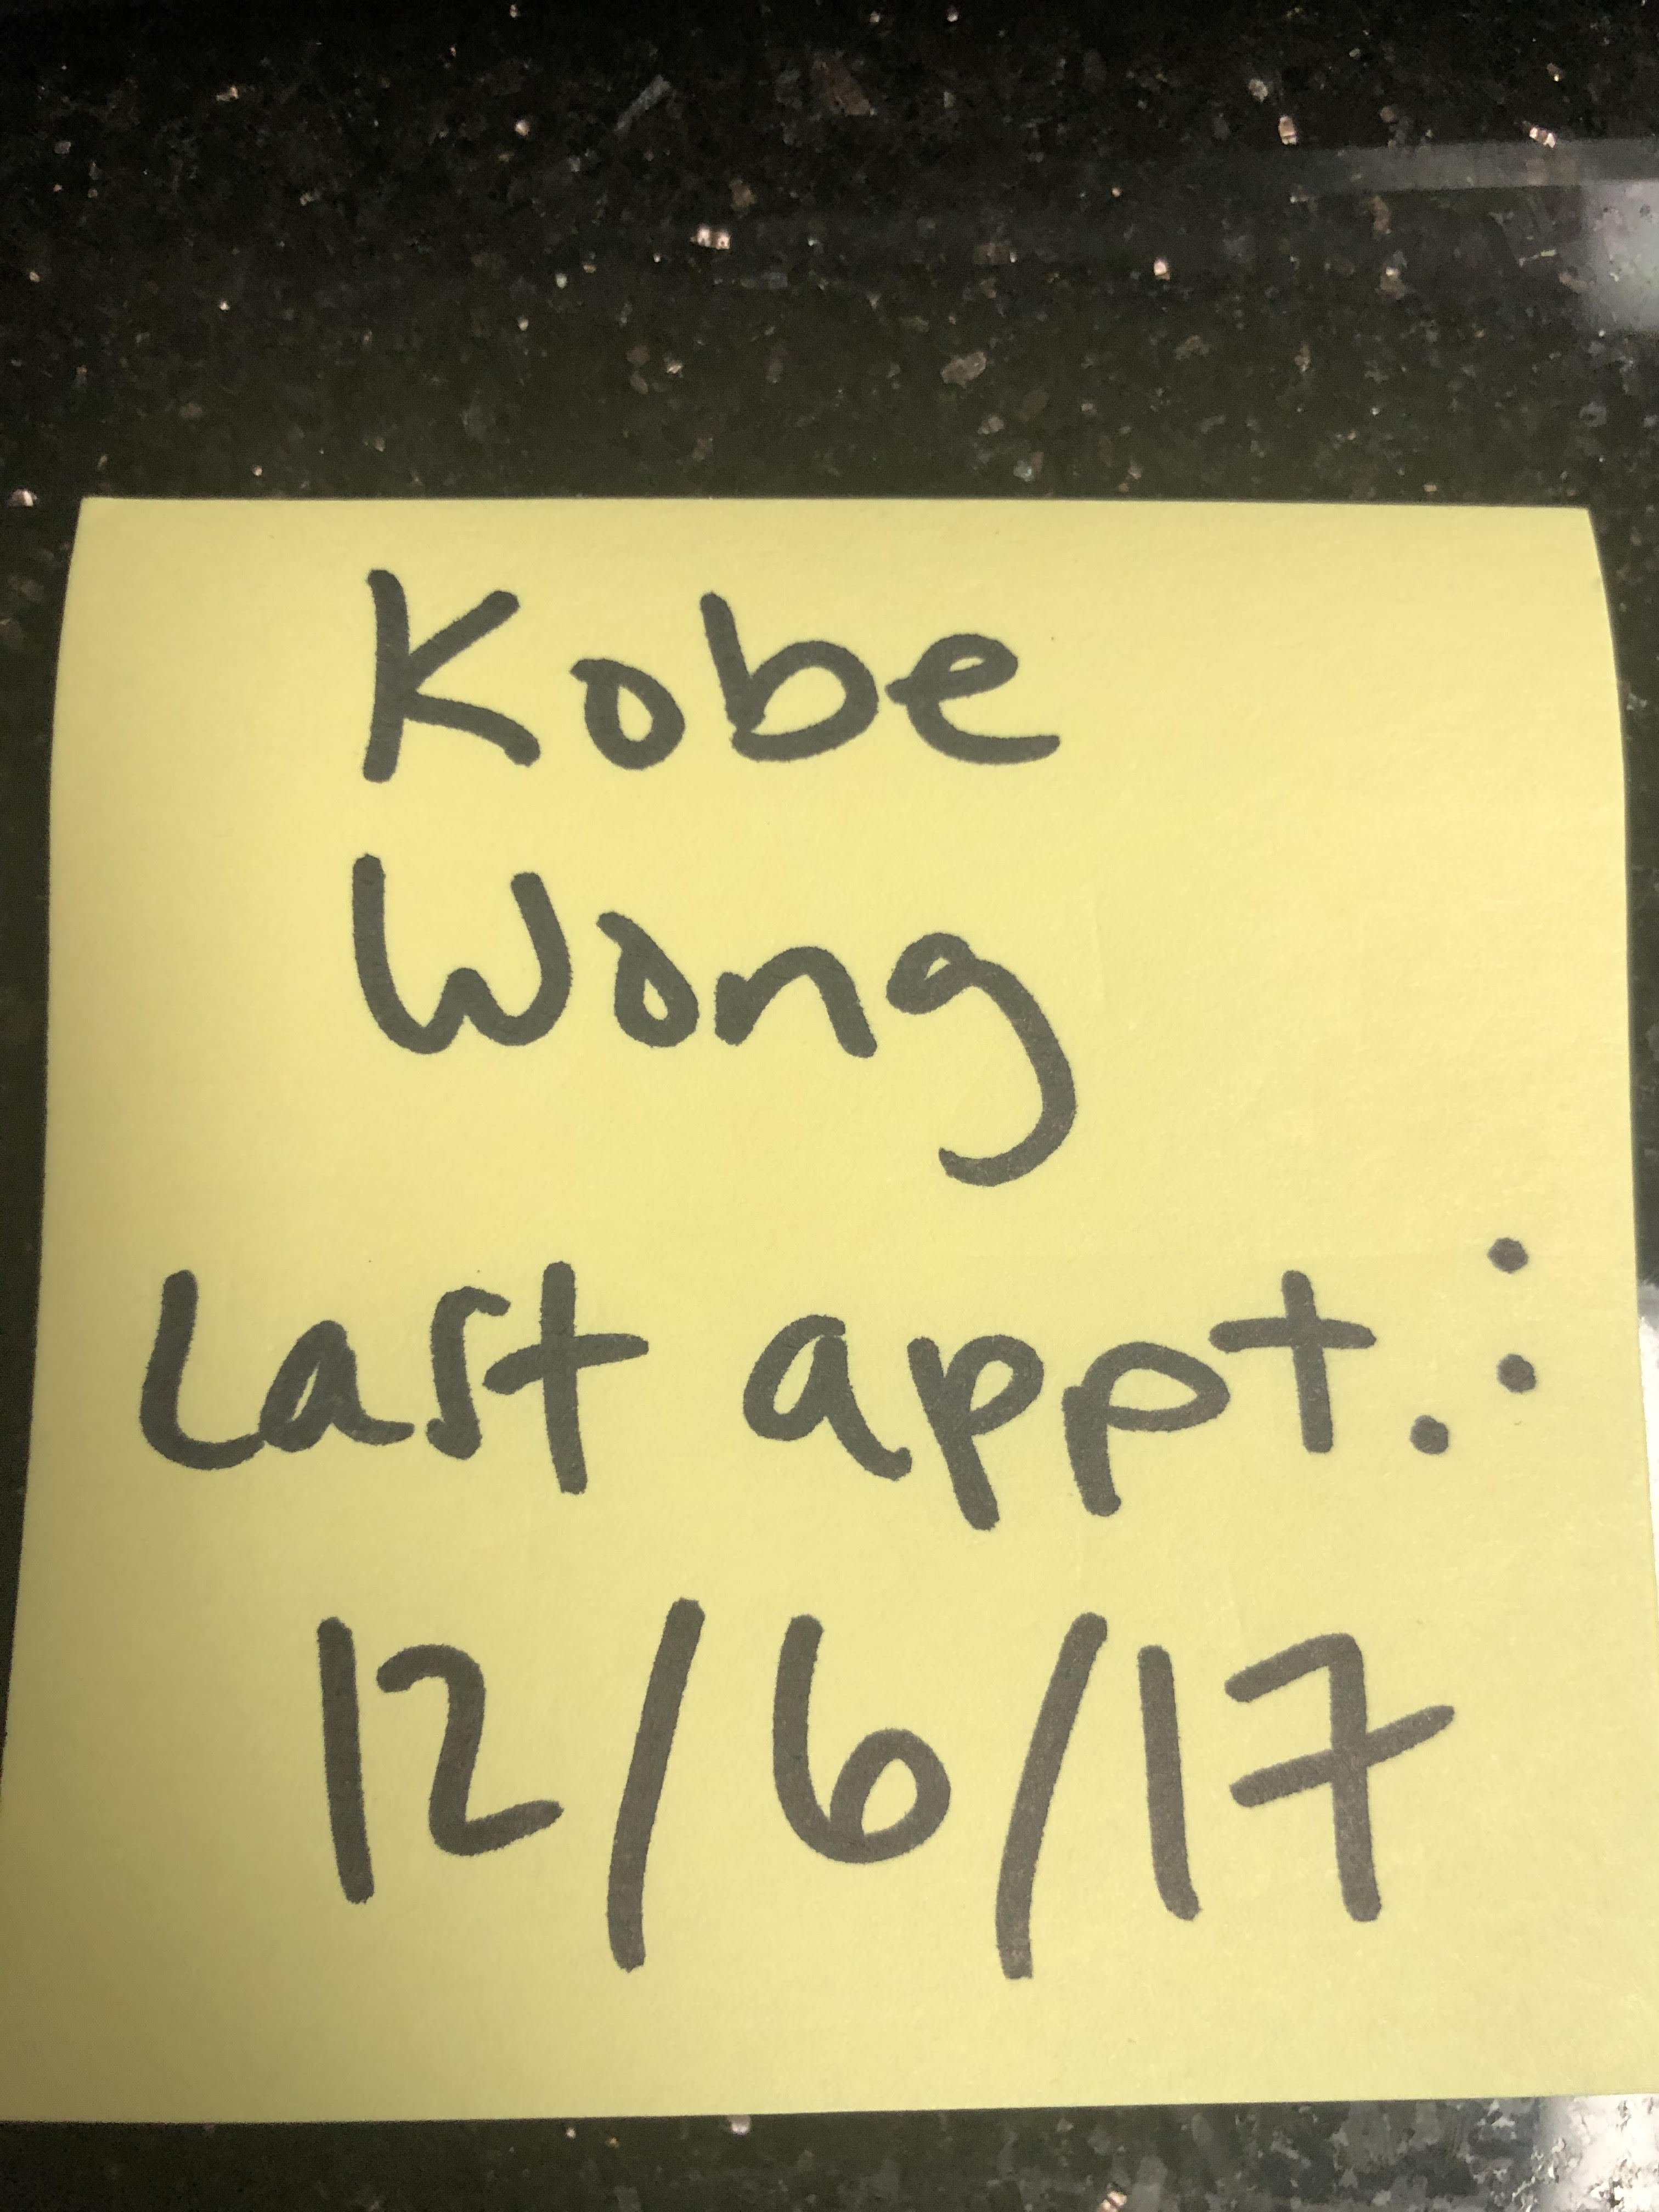 Kobe
Wong
Last appt.:
12/6/17